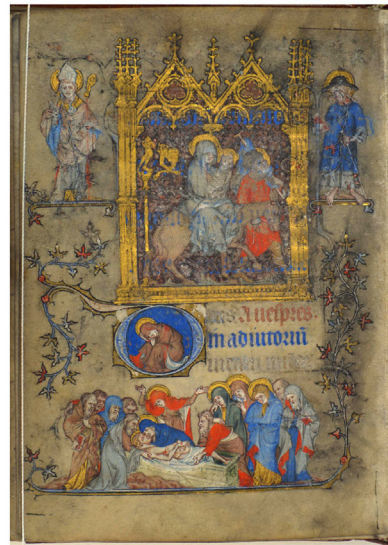 Deus A uespres.
in adiutoriū
meum intende